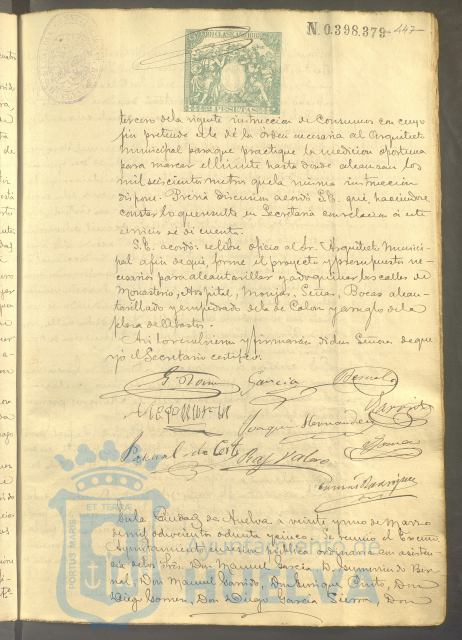 N. 0.398.379
447
2 PESETAS
tercero de la vigente instruccion de Consumos con cuyo
fin pretende se le dé la orden necesaria al Arquitecto
municipal para que practique la medicion oportuna
para marcar el limite hasta donde alcanzan los
mil seiscientos metros que la misma instruccion
dispone. Previa discusion acordó S.E. que, haciendose
constar lo que resulte en Secretaria con relacion á este
servicio se dé cuenta.
S.E. acordó se libre oficio al Sr. Arquitecto Munici-
pal a fin de que forme el proyecto y presupuesto ne-
cesarios para alcantarillar y adoquinar las calles de
Monasterio, Hospital, Monjas, Señas, Bocas alcan-
tarillado y empedrado de la de Colon y arreglo de la
plaza de Abastos.
Asi lo resolvieron y firmarán dichos Señores de que
yo el Secretario certifico.
Garcia
Bernal
Garrido
Joaquin Hernandez
Pascual de Corte
Raf Valero
Gomez
Ramon Rodriguez
En la Ciudad de Huelva a veinte y uno de Marzo
de mil ochocientos ochenta y cinco: se reunió el Excmo
Ayuntamiento en sesion publica ordinaria con asisten-
cia de los Sres. Don Manuel Garcia, D. Gumersindo Ber-
nal, Don Manuel Garrido, Don Enrique Pinto, Don
Diego Gomez, Don Diego Garcia Sierra, Don
ET TERRA
PORTUS MARIS
Ayuntamiento de
HUELVA